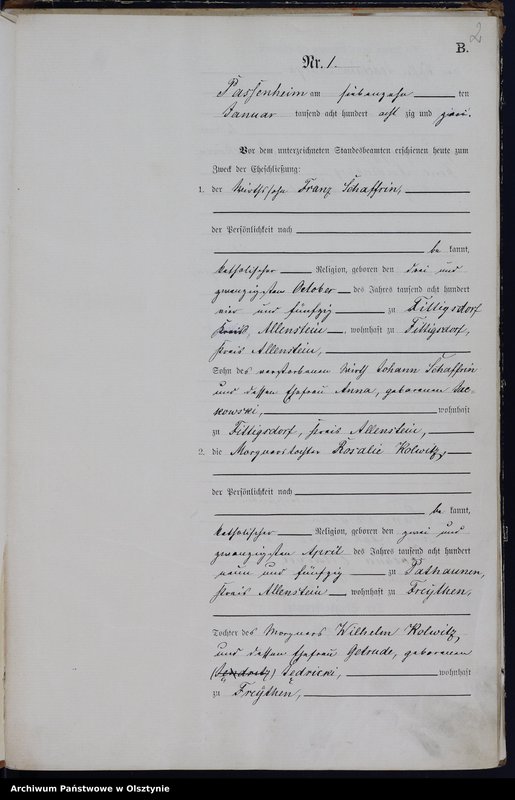 2
B.
Nr. 1.
Passenheim am siebenzehn ten
Januar tausend acht hundert acht zig und zwei.
Vor dem unterzeichneten Standesbeamten erschienen heute zum
Zweck der Eheschließung:
1. der Wirthssohn Franz Schaffrin,
der Persönlichkeit nach
be kannt,
katholischer Religion, geboren den drei und
zwanzigsten October des Jahres tausend acht hundert
vier und fünfzig zu Fittigsdorf
Kreis Allenstein, wohnhaft zu Fittigsdorf,
Kreis Allenstein,
Sohn des verstorbenen Wirth Johann Schaffrin
und dessen Ehefrau Anna, geborenen
kowski, wohnhaft
zu Fittigsdorf, Kreis Allenstein,
2. die Morgnerstochter Rosalie Kolwitz,
der Persönlichkeit nach
be kannt,
katholischer Religion, geboren den zwei und
zwanzigsten April des Jahres tausend acht hundert
neun und fünfzig zu Pathaunen,
Kreis Allenstein wohnhaft zu Freythen,
Tochter des Morgners Wilhelm Kolwitz,
und dessen Ehefrau Getrude, geborenen
(Jendritz) Jedricki, wohnhaft
zu Freythen,
Archiwum Państwowe w Olsztynie